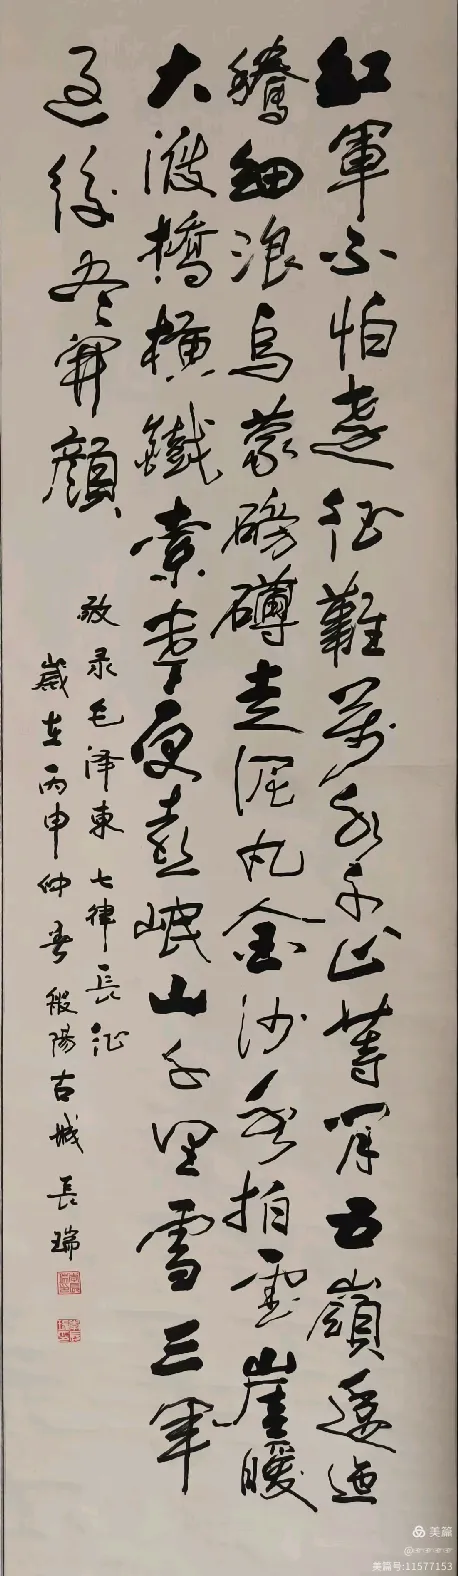 紅軍不怕遠征難萬水千山等閑五嶺逶迤
騰細浪烏蒙磅礴走泥丸金沙水拍雲崖暖
大渡橋橫鐵索寒更喜岷山千里雪三軍
過後盡開顏
敬录毛泽東七律長征
歲在丙申仲春般陽古城長瑞
美篇
美篇号:11577153